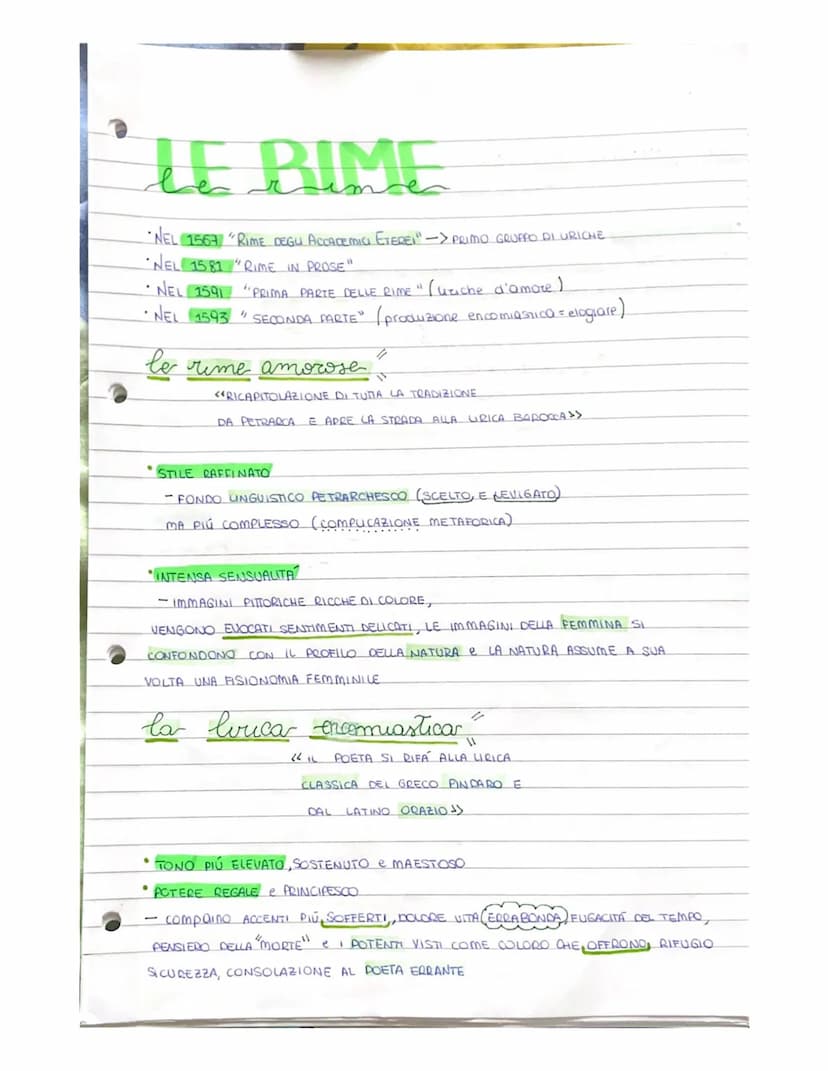 LE RIME
le rime
· NEL 1567 "RIME DEGLI ACCADEMICI ETEREI" -> PRIMO GRUPPO DI LIRICHE
· NEL 1581 "RIME IN PROSE"
· NEL 1591 "PRIMA PARTE DELLE RIME" (liriche d'amore)
· NEL 1593 "SECONDA PARTE" (produzione encomiastica = elogiare)
le rime amorose
«RICAPITOLAZIONE DI TUTTA LA TRADIZIONE
DA PETRARCA E APRE LA STRADA ALLA LIRICA BAROCCA»
· STILE RAFFINATO
- FONDO LINGUISTICO PETRARCHESCO (SCELTO, E LEVIGATO)
MA PIÚ COMPLESSO (COMPLICAZIONE METAFORICA)
· INTENSA SENSUALITÁ
- IMMAGINI PITTORICHE RICCHE DI COLORE,
VENGONO EVOCATI SENTIMENTI DELICATI, LE IMMAGINI DELLA FEMMINA SI
CONFONDONO CON IL PROFILO DELLA NATURA e LA NATURA ASSUME A SUA
VOLTA UNA FISIONOMIA FEMMINILE
la lirica encomiastica
«IL POETA SI RIFÁ ALLA LIRICA
CLASSICA DEL GRECO PINDARO E
DAL LATINO ORAZIO»
· TONO PIÚ ELEVATO, SOSTENUTO e MAESTOSO
· POTERE REGALE e PRINCIPESCO
- compaino ACCENTI PIÚ SOFFERTI, DOLORE VITA ERRABONDA, FUGACITÁ DEL TEMPO,
PENSIERO DELLA "MORTE" e i POTENTI VISTI COME COLORO CHE OFFRONO RIFUGIO
SICUREZZA, CONSOLAZIONE AL POETA ERRANTE